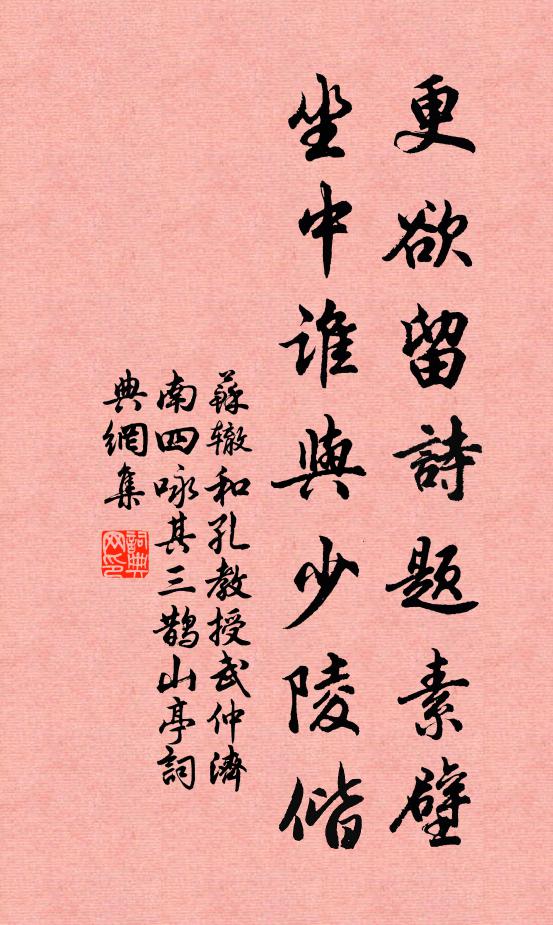 更欲留詩題素壁
坐中誰與少陵偕
蘇轍和孔教授武仲濟
南四咏其三鵲山亭詞
典網集
詞典网印